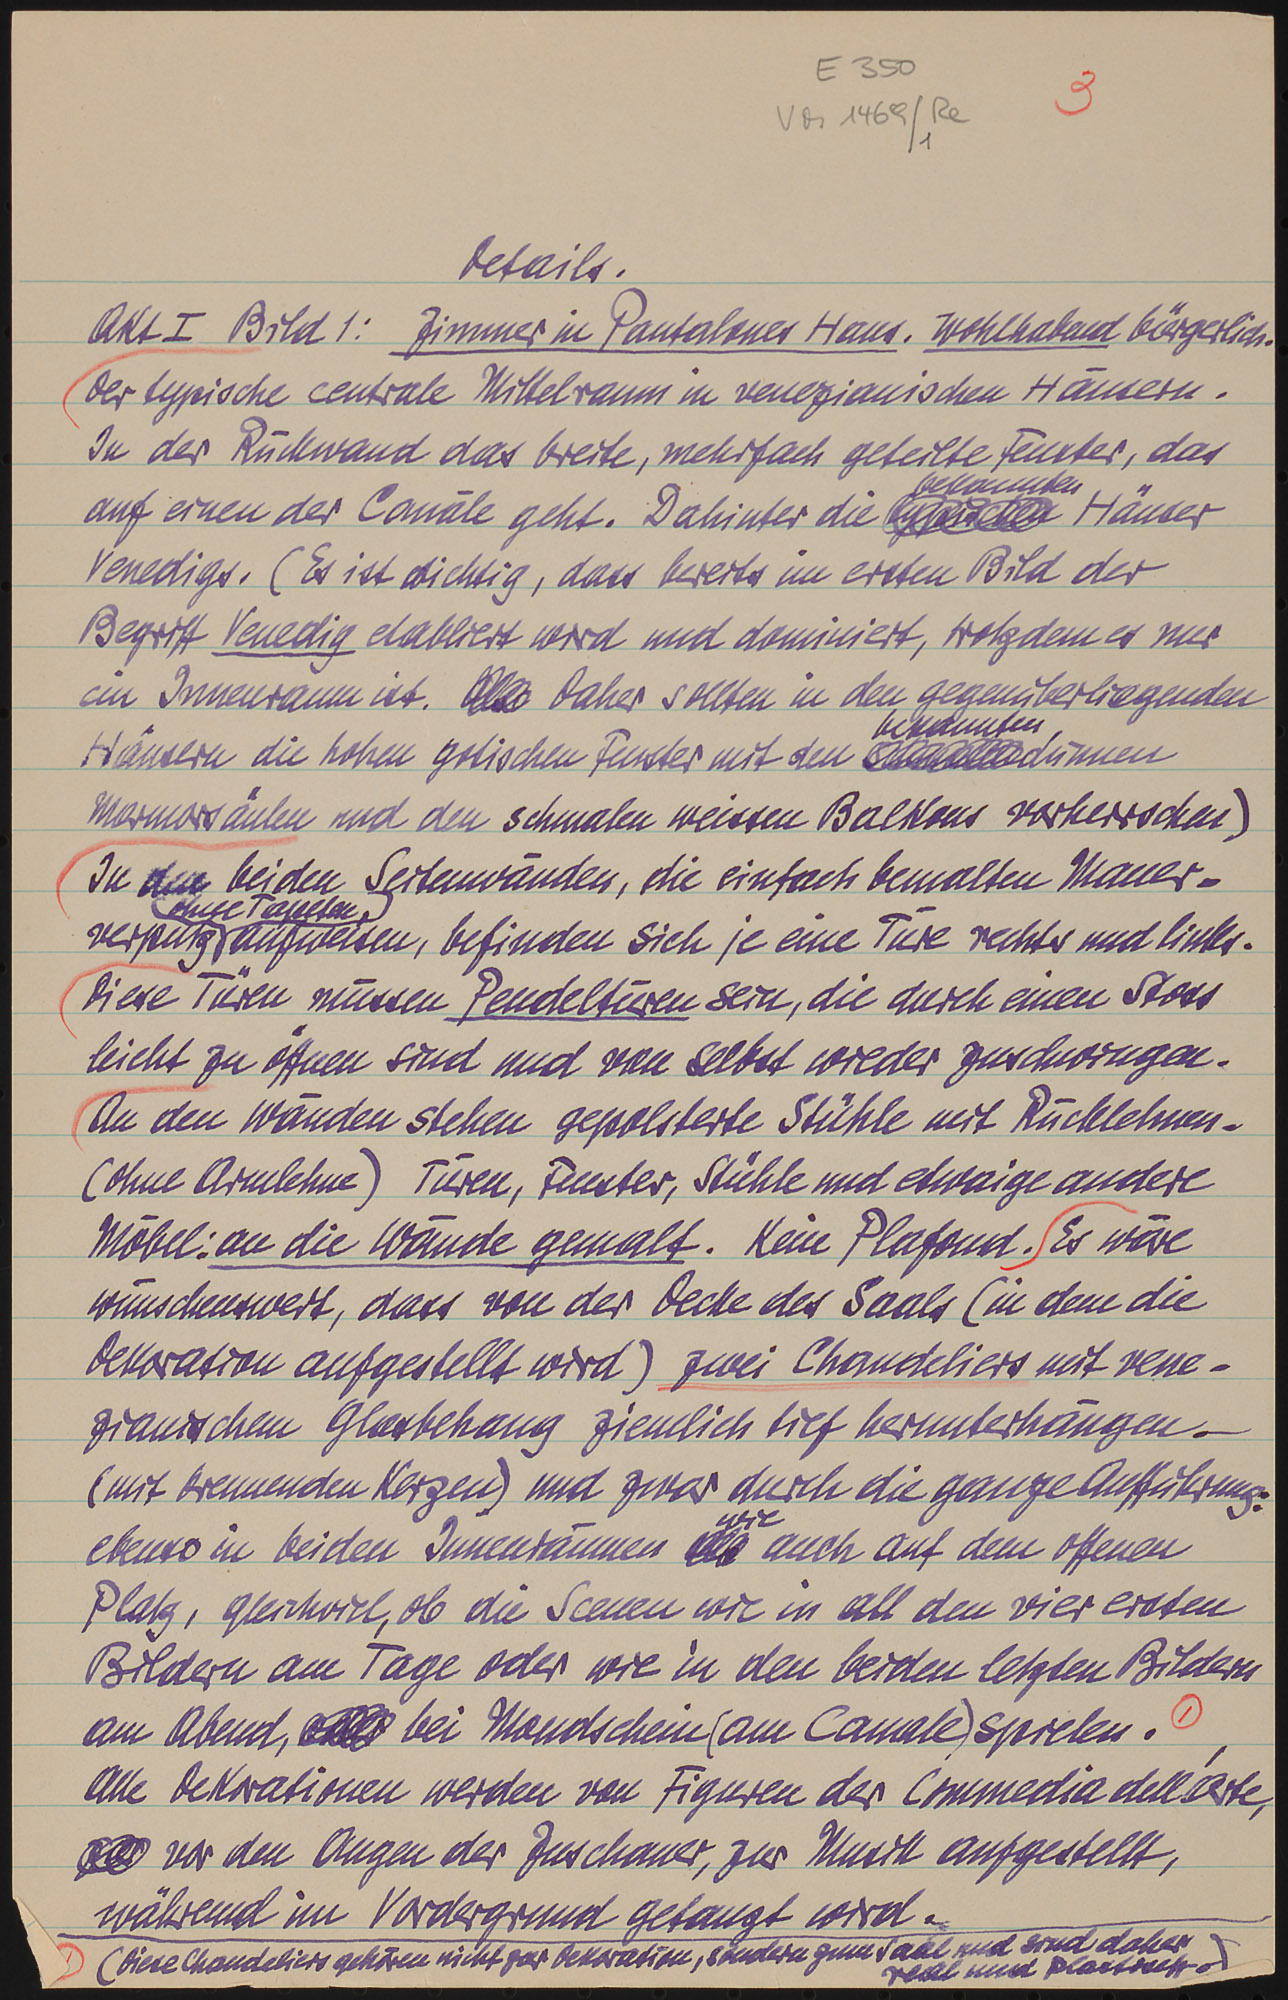 E 350
3
VM 1469/Re
1
Details.
Akt I Bild 1: Zimmer in Pantalones Haus. Wohlhabend bürgerlich.
Der typische centrale Mittelraum in venezianischen Häusern.
In der Rückwand das breite, mehrfach geteilte Fenster, das
bekannten
auf einen der Canäle geht. Dahinter die Häuser
Venedigs. (Es ist wichtig, dass bereits im ersten Bild der
Begriff Venedig etabliert wird und dominiert, trotzdem es nur
ein Innenraum ist. Daher sollten in den gegenüberliegenden
bekannten
Häusern die hohen gotischen Fenster mit den dünnen
Marmorsäulen und den schmalen weissen Balkons vorherrschen)
In den beiden Seitenwänden, die einfach bemalten Mauer-
(ohne Tapeten)
verputz aufweisen, befinden sich je eine Türe rechts und links.
Diese Türen müssen Pendeltüren sein, die durch einen Stoss
leicht zu öffnen sind und von selbst wieder zuschwingen.
An den Wänden stehen gepolsterte Stühle mit Rücklehnen-
(ohne Armlehne) Türen, Fenster, Stühle und etwaige andere
Möbel: an die Wände gemalt. Kein Plafond. Es wäre
wünschenswert, dass von der Decke des Saals (in dem die
Dekoration aufgestellt wird) zwei Chandeliers mit vene-
zianischem Glasbehang ziemlich tief herunterhängen -
(mit brennenden Kerzen) und zwar durch die ganze Aufführung:
wie
ebenso in beiden Innenräumen auch auf dem offenen
Platz, gleichviel, ob die Scenen wie in all den vier ersten
Bildern am Tage oder wie in den beiden letzten Bildern
am Abend, bei Mondschein (am Canale) spielen. 1
Alle Dekorationen werden von Figuren der Commedia dell'arte,
vor den Augen der Zuschauer, zur Musik aufgestellt,
während im Vordergrund getanzt wird.
1 (Diese Chandeliers gehören nicht zur Dekoration, sondern zum Saal und sind daher
real und plastisch.)